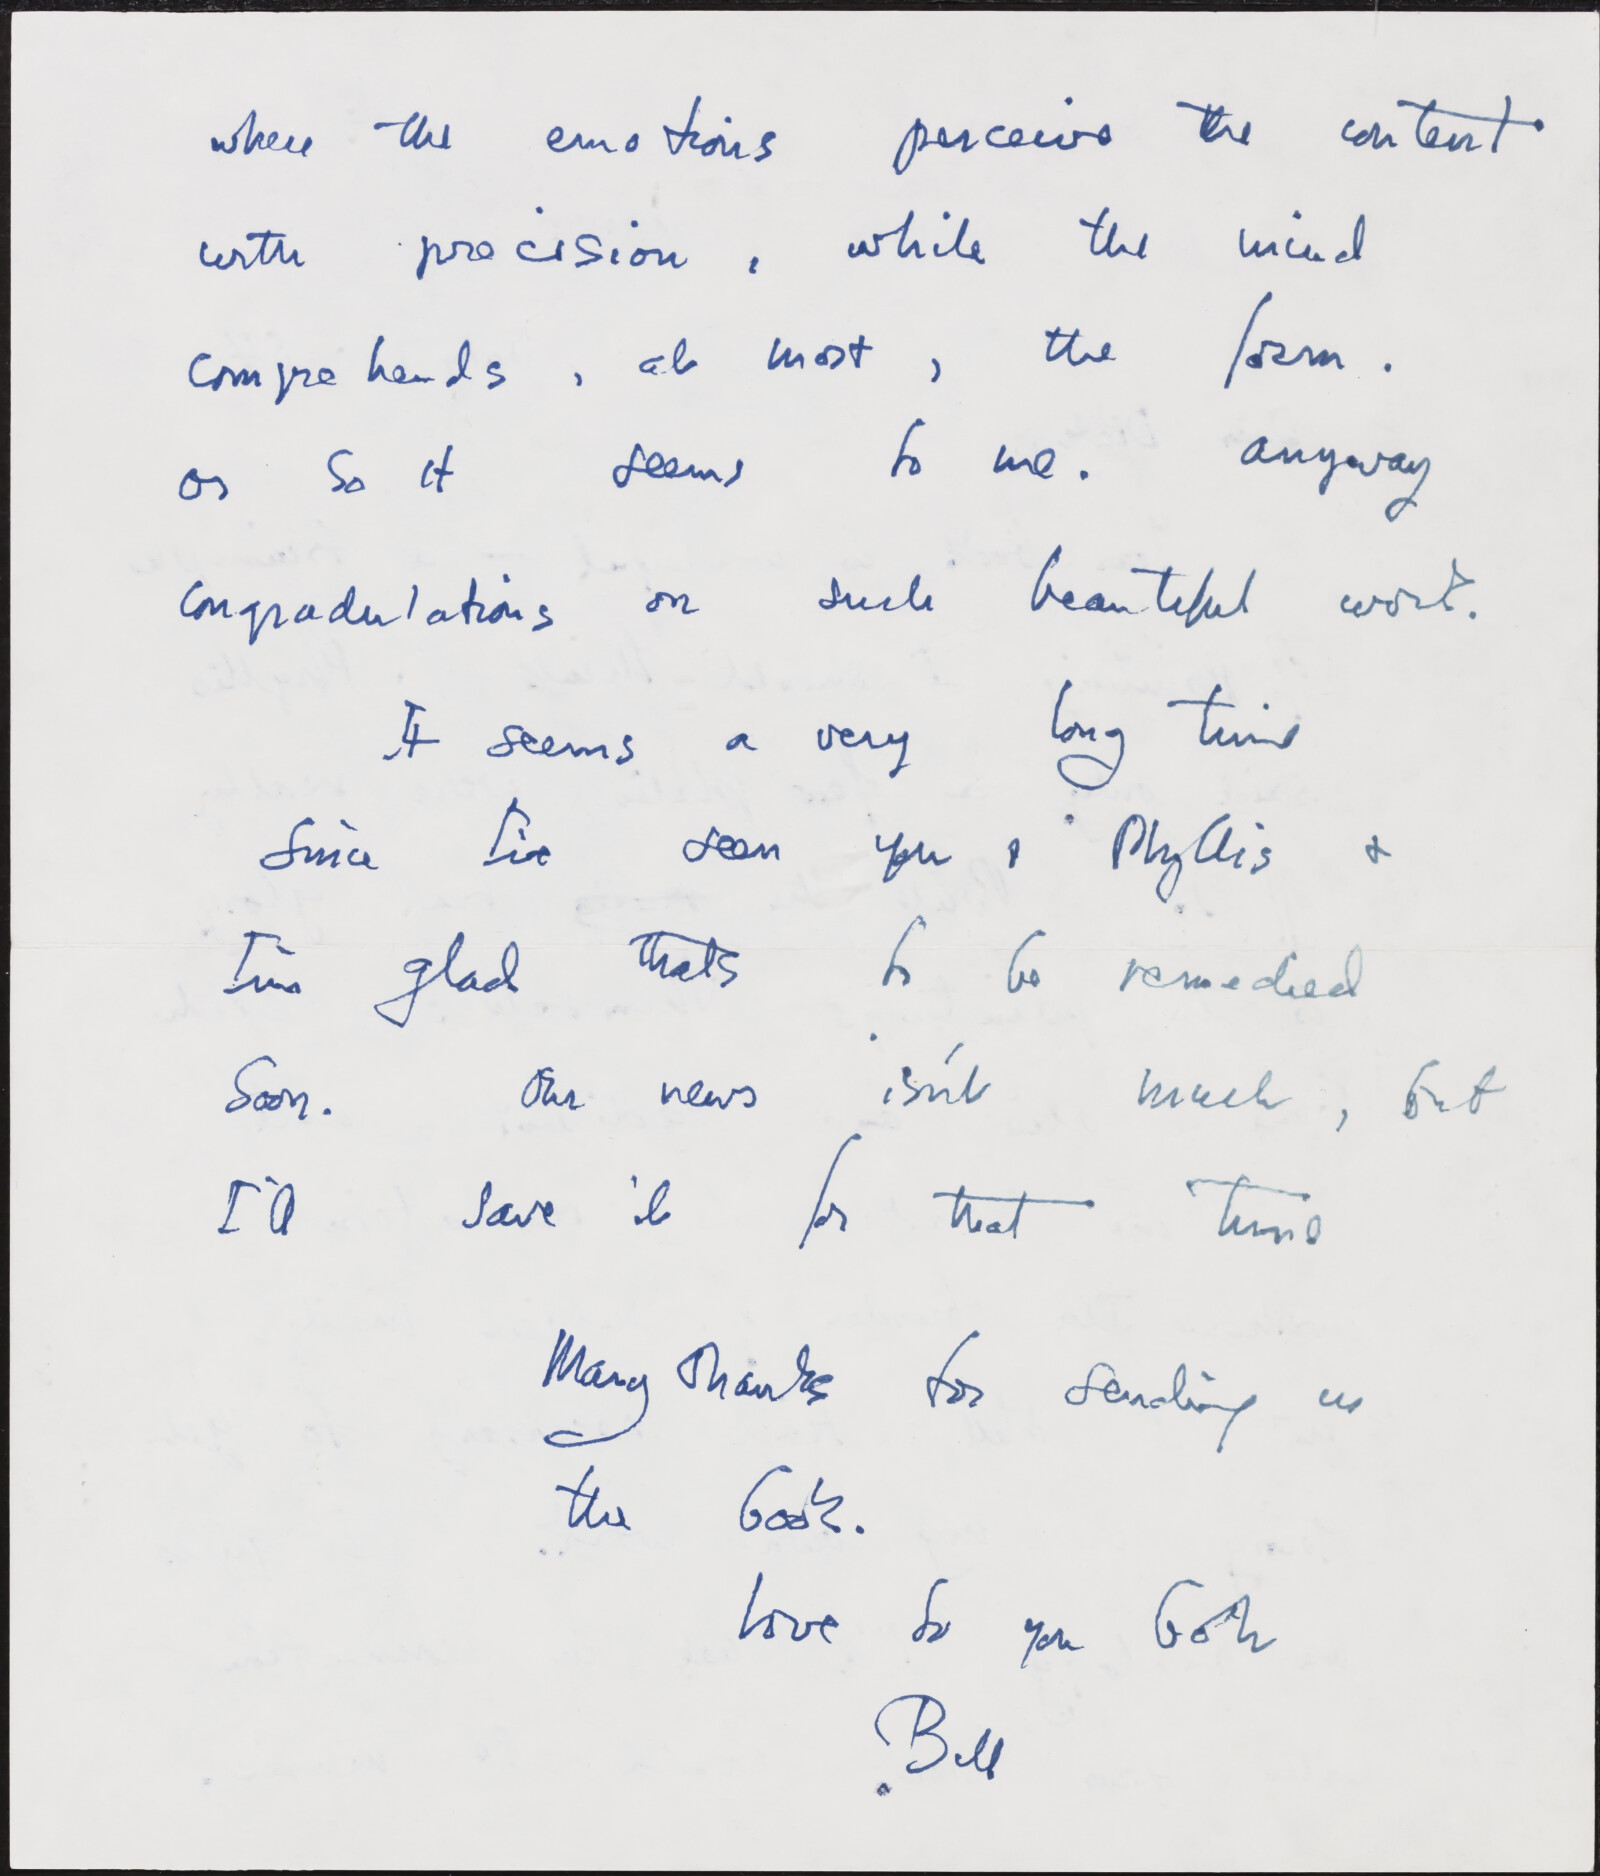 where the emotions perceive the content
with precision, while the mind
comprehends, at most, the form.
or so it seems to me. anyway
congradulations on such beautiful work.
It seems a very long time
since I've seen you & Phyllis &
I'm glad thats to be remedied
soon. Our news isn't much, but
I'll save it for that time
Many thanks for sending us
the book.
Love to you both
Bill